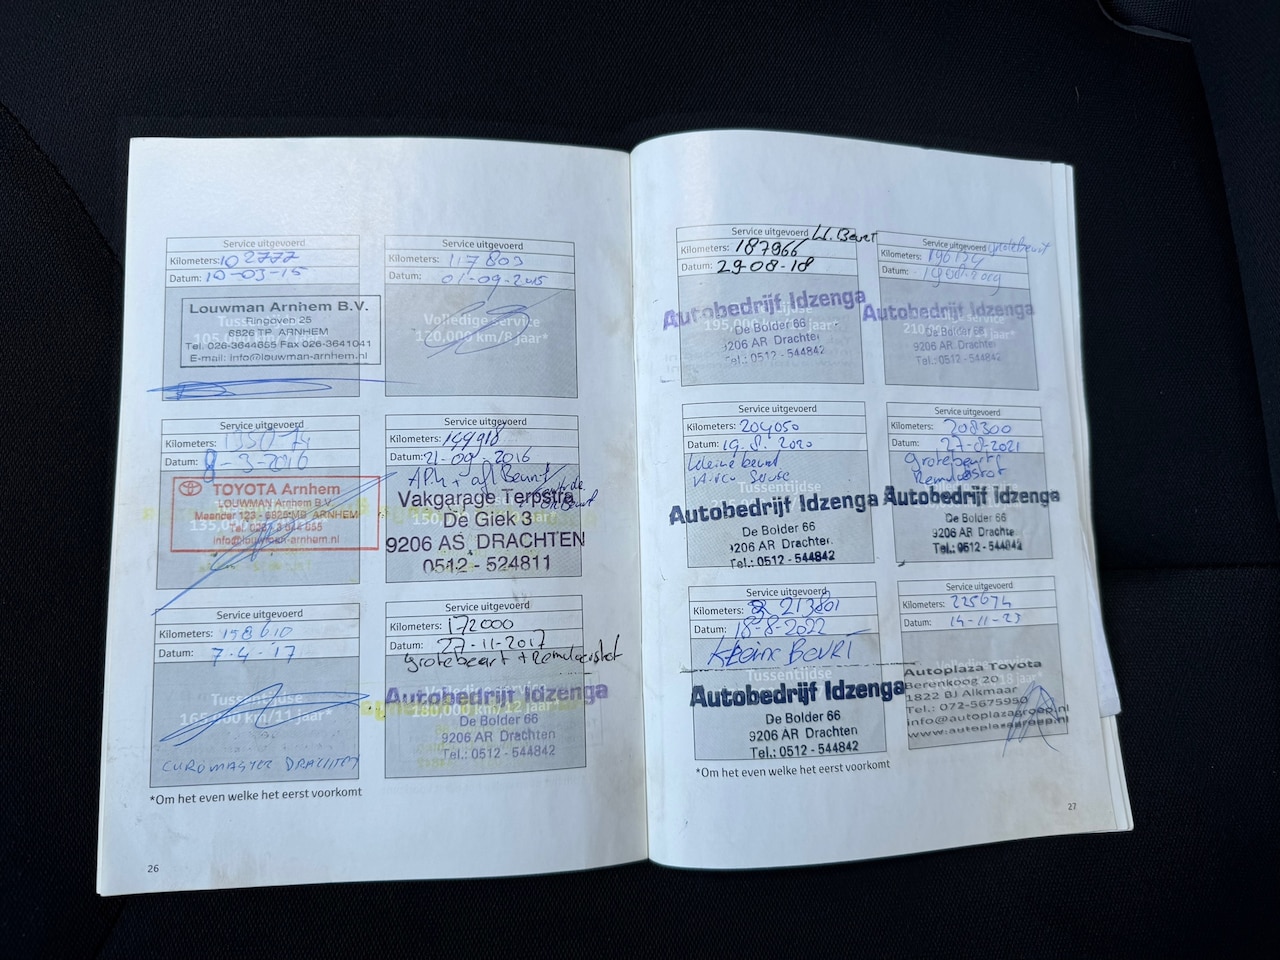 Service uitgevoerd
Kilometers: 102777
Datum: 10-03-15
Louwman Arnhem B.V.
Ringoven 25
6826 TP ARNHEM
Tel. 026-3644655 Fax 026-3641041
E-mail: info@louwman-arnhem.nl
Service uitgevoerd
Kilometers: 117803
Datum: 01-09-2015
Volledige service
120,000 km/8 jaar*
Service uitgevoerd
Kilometers:
Datum: 8-3-2016
TOYOTA Arnhem
LOUWMAN Arnhem B.V.
Meander 123 - 6825 MB ARNHEM
info@louwman-arnhem.nl
Service uitgevoerd
Kilometers: 149918
Datum: 21-09-2016
Vakgarage Terpstra
De Giek 3
9206 AS DRACHTEN
0512 - 524811
Service uitgevoerd
Kilometers: 158610
Datum: 7-4-17
Tussentijdse
165,000 km/11 jaar*
EUROMASTER DRACHTEN
Service uitgevoerd
Kilometers: 172000
Datum: 27-11-2017
grotebeurt + Remvloeistof
Autobedrijf Idzenga
180,000 km/12 jaar*
De Bolder 66
9206 AR Drachten
Tel.: 0512 - 544842
*Om het even welke het eerst voorkomt
26
Service uitgevoerd kl. Beurt
Kilometers: 187966
Datum: 29-08-18
Autobedrijf Idzenga
195,000
De Bolder 66
9206 AR Drachten
Tel.: 0512 - 544842
Service uitgevoerd grotebeurt
Kilometers:
Datum:
Autobedrijf Idzenga
De Bolder 66
9206 AR Drachten
Tel.: 0512 - 544842
Service uitgevoerd
Kilometers: 204050
Datum: 19.8.2020
kleine beurt
Tussentijdse
Autobedrijf Idzenga
De Bolder 66
9206 AR Drachten
Tel.: 0512 - 544842
Service uitgevoerd
Kilometers: 208300
Datum: 27-8-2021
grotebeurt
Remvloeistof
Autobedrijf Idzenga
De Bolder 66
9206 AR Drachten
Tel.: 0512 - 544842
Service uitgevoerd
Kilometers: 213801
Datum: 18-8-2022
Kleine BEURT
Autobedrijf Idzenga
De Bolder 66
9206 AR Drachten
Tel.: 0512 - 544842
Service uitgevoerd
Kilometers: 225674
Datum: 14-11-23
Autoplaza Toyota
Berenkoog 20
1822 BJ Alkmaar
Tel.: 072-5675950
info@autoplazagroep.nl
www.autoplazagroep.nl
*Om het even welke het eerst voorkomt
27